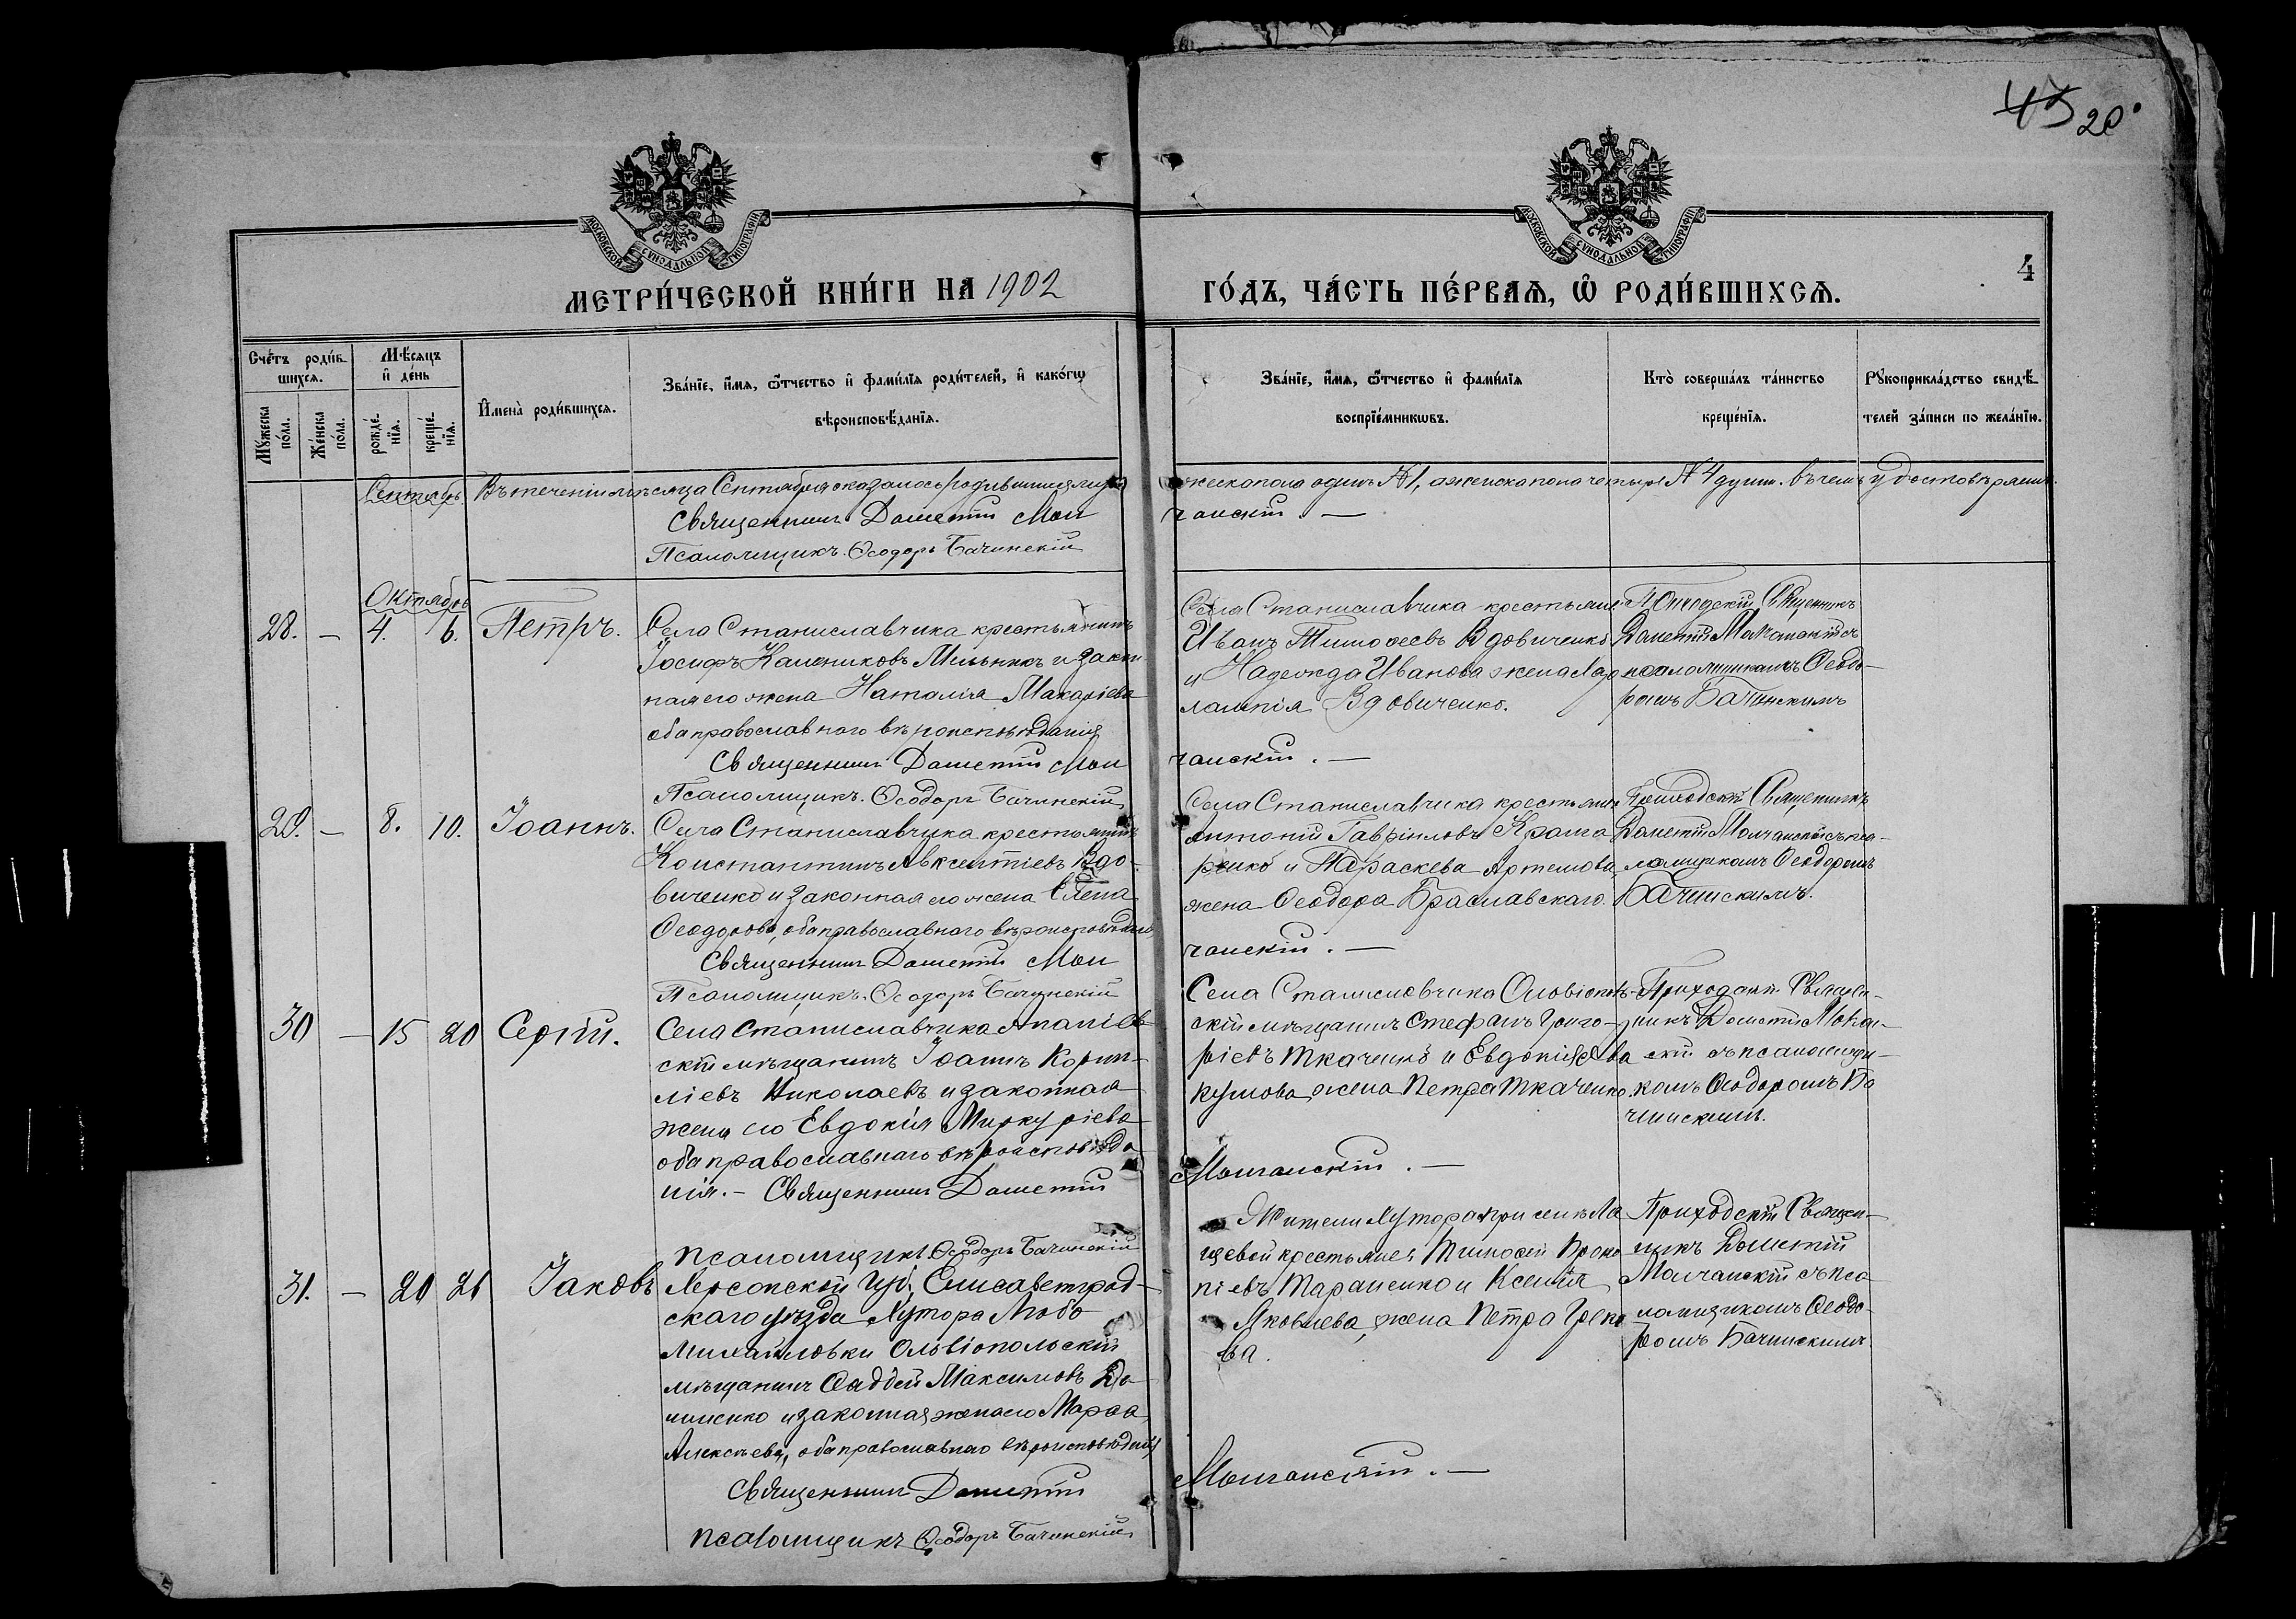 43 20
МОСКОВСКОЙ СѴНОДАЛЬНОЙ ТИПОГРАФІИ
МОСКОВСКОЙ СѴНОДАЛЬНОЙ ТИПОГРАФІИ
4
МЕТРИ́ЧЕСКОЙ КНИ́ГИ НА 1902
ГО́ДЪ, ЧА́СТЬ ПЕ́РВАЯ, Ѽ РОДИ́ВШИХСЯ.
Сче́тъ роди́в-
шихся.
Мѣ́сяцъ
и҆ де́нь
Мꙋ́жеска
по́ла.
Же́нска
по́ла.
рожде́-
нїѧ.
креще́-
нїѧ.
И҆мена̀ роди́вшихся.
Зва́нїе, и҆́мѧ, ѻ҆́тчество и҆ фами́лїѧ роди́телей, и҆ како́гѡ
вѣроисповѣ́данїѧ.
Зва́нїе, и҆́мѧ, ѻ҆́тчество и҆ фами́лїѧ
воспрїе́мниковъ.
Кто̀ соверша́лъ та́инство
креще́нїѧ.
Рꙋкоприкла́дство свидѣ́-
телей за́писи по жела́нїю.
Сентябрь. Въ теченіи мѣсяца Сентября оказалось родившихся му
жеска пола одинъ №1, а женска пола четыре №4 душ. въ чемъ удостовѣряемъ.
Священникъ Дометій Мол
чанскій. —
Псаломщикъ Ѳеодоръ Бачинскій
Октябрь
28. — 4. 6. Петръ.
Села Станиславчика крестьянинъ
Іосифъ Мельникъ и закон
ная его жена Наталія Макаріева
оба православнаго вѣроисповѣданія
Священникъ Дометій Мол
Псаломщикъ. Ѳеодоръ Бачинскій
Села Станиславчика крестьяни
Иванъ Тимоѳеевъ Вдовиченко
и Надежда Иванова жена
лампія Вдовиченко.
чанскій. —
Приходскій Священникъ
Дометій Молчанскій съ
псаломщикомъ Ѳеодо-
ромъ Бачинскимъ
29. — 8. 10. Іоаннъ.
Села Станиславчика крестьянинъ
Константинъ Авксентіевъ Вдо-
виченко и законная его жена Елена
Ѳеодорова, оба православнаго вѣроисповѣданія
Священникъ Дометій Мол
Псаломщикъ. Ѳеодоръ Бачинскій
Села Станиславчика крестьяни
Антоній Гавріиловъ
ренко и Параскева Артемова
жена Ѳеодора Браславскаго.
чанскій. —
Приходскій Священникъ
Дометій Молчанскій съ пса-
ломщикомъ Ѳеодоромъ
Бачинскимъ.
30 — 15 20 Сергій.
Села Станиславчика
скій мѣщанинъ Іоаннъ Корни-
ліевъ Николаевъ и законная
жена его Евдокія Меркуріева
оба православнаго вѣроисповѣда
нія. — Священникъ Дометій
псаломщикъ Ѳеодоръ Бачинскій
Села Станиславчика Ольвіополь-
скій мѣщанинъ Стефанъ Григо-
ріевъ Ткаченко и Евдокія
жена Петра Ткаченко.
Молчанскій. —
Приходскій Священ-
никъ Дометій Молчан-
скій съ псаломщи-
комъ Ѳеодоромъ Ба
чинскимъ.
31. — 20 26 Іаковъ
Херсонской губ. Елисаветград-
скаго уѣзда Хутора Любо
Михайловки Ольвіопольскій
мѣщанинъ Ѳаддей Максимовъ До
и законная жена его Марѳа
Алексѣева, оба православнаго вѣроисповѣданія
Священникъ Дометій
псаломщикъ Ѳеодоръ Бачинскій
Жители Хутора при селѣ Ла
щевой крестьяне: Тимоѳей Проко
піевъ Тараненко и Ксенія
Яковлева, жена Петра Греко
ва.
Молчанскій. —
Приходскій Священ-
никъ Дометій
Молчанскій съ пса
ломщикомъ Ѳеодо-
ромъ Бачинскимъ.